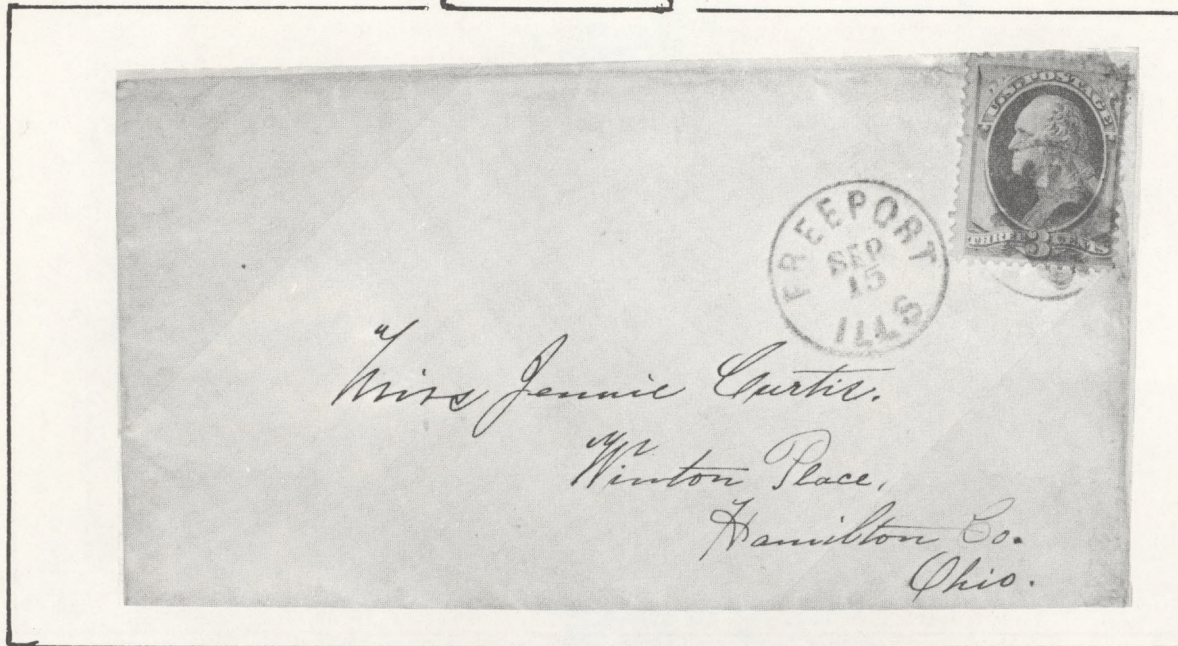 U.S. POSTAGE
THREE 3 CENTS
FREEPORT
SEP
15
ILLS
Miss Jennie Curtis.
Winton Place,
Hamilton Co.
Ohio.